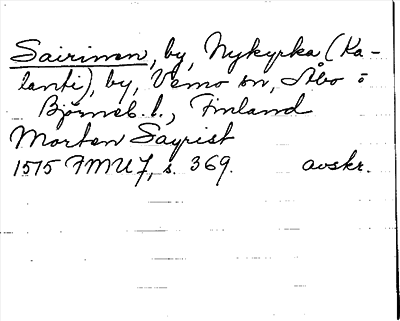 Sairinen, by, Nykyrka (Ka-
lanti), by, Vemo sn, Åbo o
Björneb. l., Finland
Morten Sayrist
1515 FMU 7, s. 369. avskr.